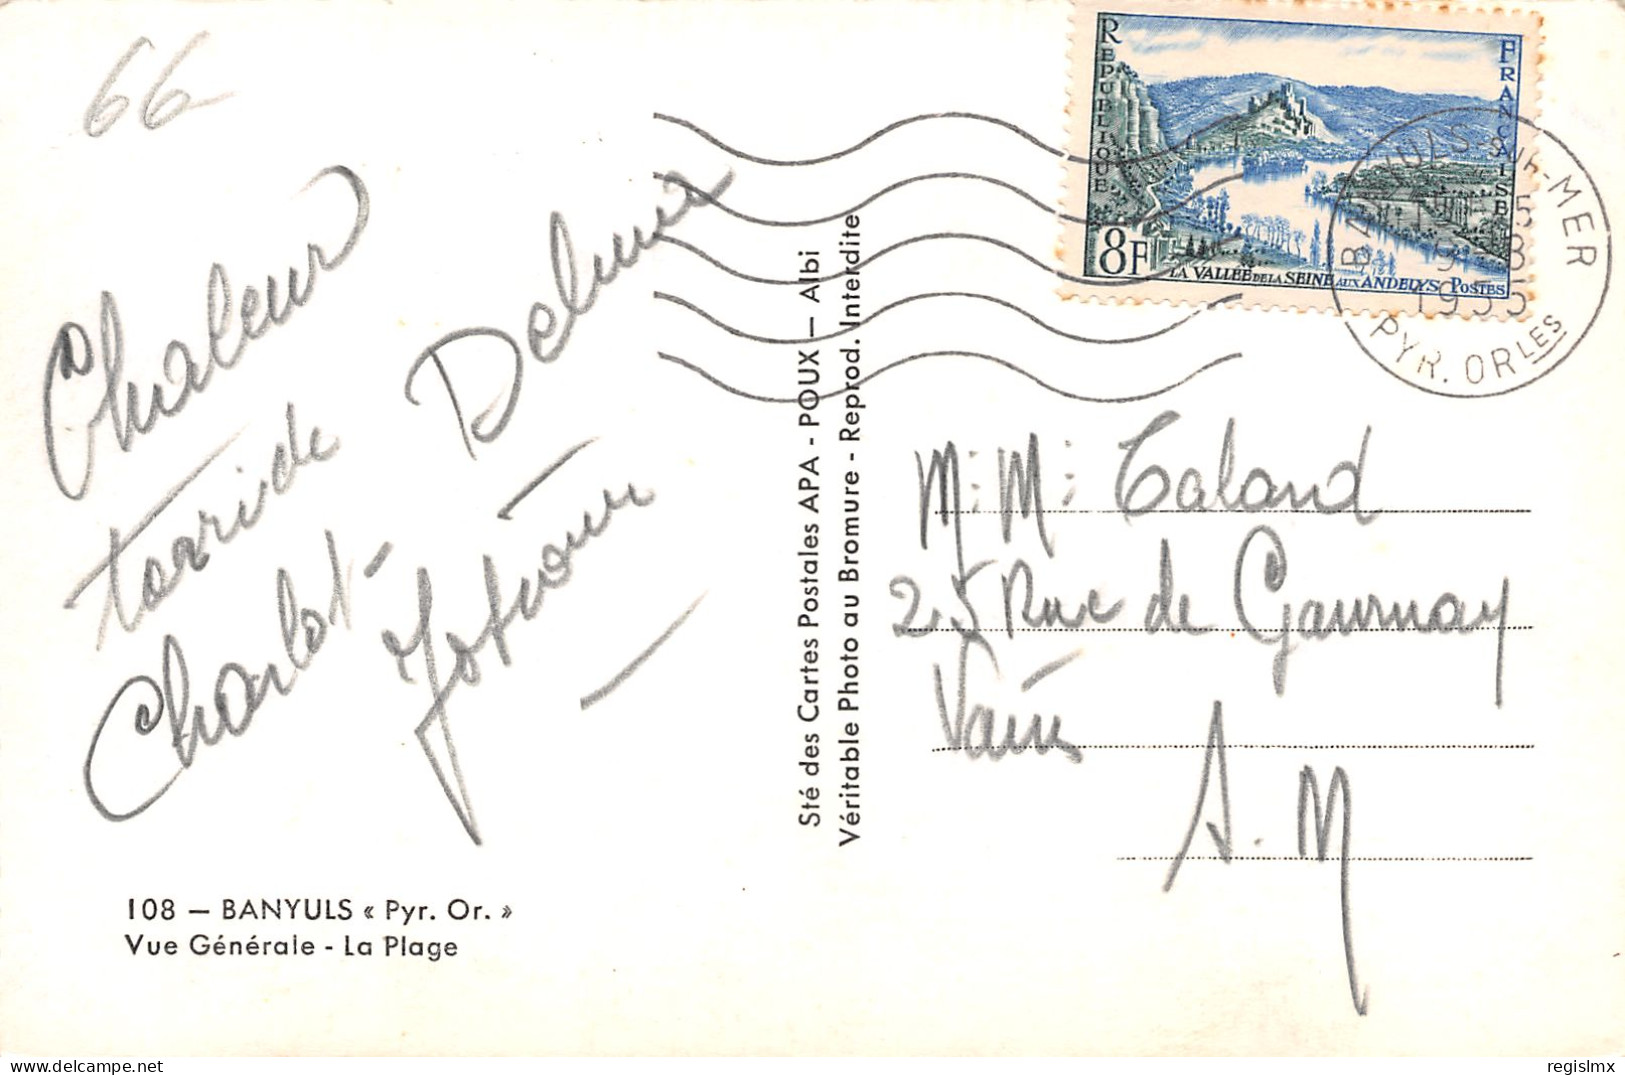 66
Chaleur
torride
Charlot
Sté des Cartes Postales APA - POUX — Albi
Véritable Photo au Bromure - Reprod. Interdite
108 — BANYULS « Pyr. Or. »
Vue Générale - La Plage
RÉPUBLIQUE FRANÇAISE
8F
LA VALLÉE DE LA SEINE AUX ANDELYS POSTES
BANYULS-SUR-MER
1955
PYR. ORLES
M: M: Caland
25 Rue de Gournay
A. M
regislmx